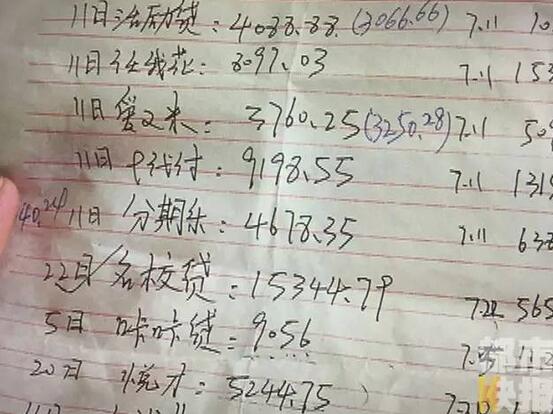 11日治励贷：4088.88(3066.66) 7.11 10
11日任线花：8097.03 7.11 153
11日爱又米：3760.25(3250.28) 7.11 50
11日 代付：9198.55 7.11 1319
40.24 11日 分期乐：4678.35 7.11 638
22日 名校贷：15344.79 7.22 565
5日 咔咔缝：9056
20日 悦才：5244.75
都市快报